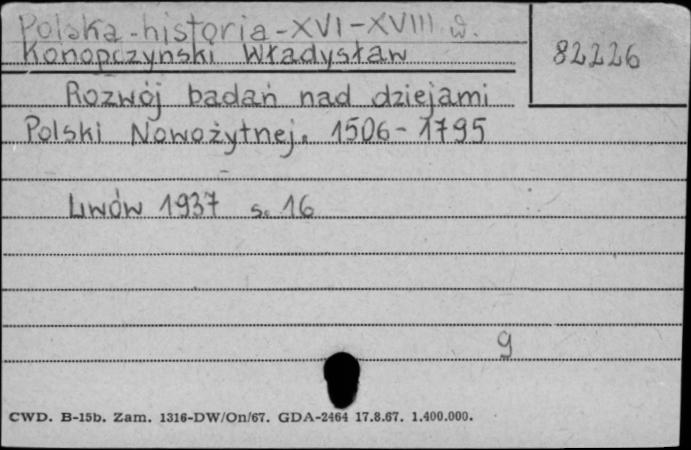 Polska-historia-XVI-XVIII w.
82226
Konopczyński Władysław
Rozwój badań nad dziejami
Polski Nowożytnej. 1506-1795
Lwów 1937 s. 16
g
CWD. B-15b. Zam. 1316-DW/On/67. GDA-2464 17.8.67. 1.400.000.